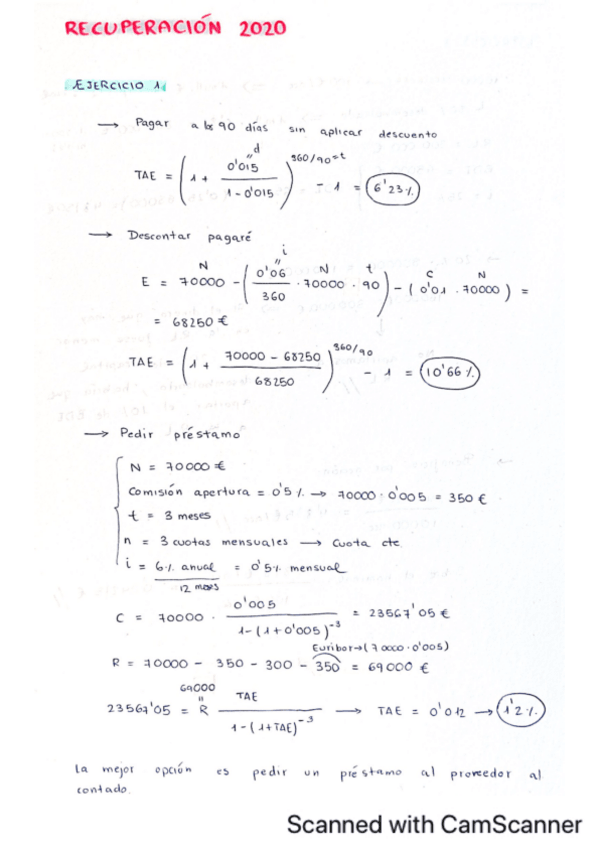 RECUPERACIÓN 2020
EJERCICIO 1
→ Pagar a los 90 días sin aplicar descuento
TAE = (1 + 0'015 / 1-0'015)^360/90=t - 1 = 6'23%
d
"
→ Descontar pagaré
E = 70000 - (0'06/360 · 70000 · 90) - (0'01 · 70000) =
N i " N t C N
= 68250 €
TAE = (1 + 70000 - 68250 / 68250)^360/90 - 1 = 10'66%
→ Pedir préstamo
N = 70000 €
Comisión apertura = 0'5% → 70000 · 0'005 = 350 €
t = 3 meses
n = 3 cuotas mensuales → Cuota cte
i = 6% anual / 12 meses = 0'5% mensual
C = 70000 · 0'005 / 1-(1+0'005)^-3 = 23567'05 €
Euribor→(70000·0'005)
R = 70000 - 350 - 300 - 350 = 69000 €
69000
"
23567'05 = R TAE / 1-(1+TAE)^-3 → TAE = 0'012 → 1'2%
la mejor opción es pedir un préstamo al proveedor al
contado.
Scanned with CamScanner